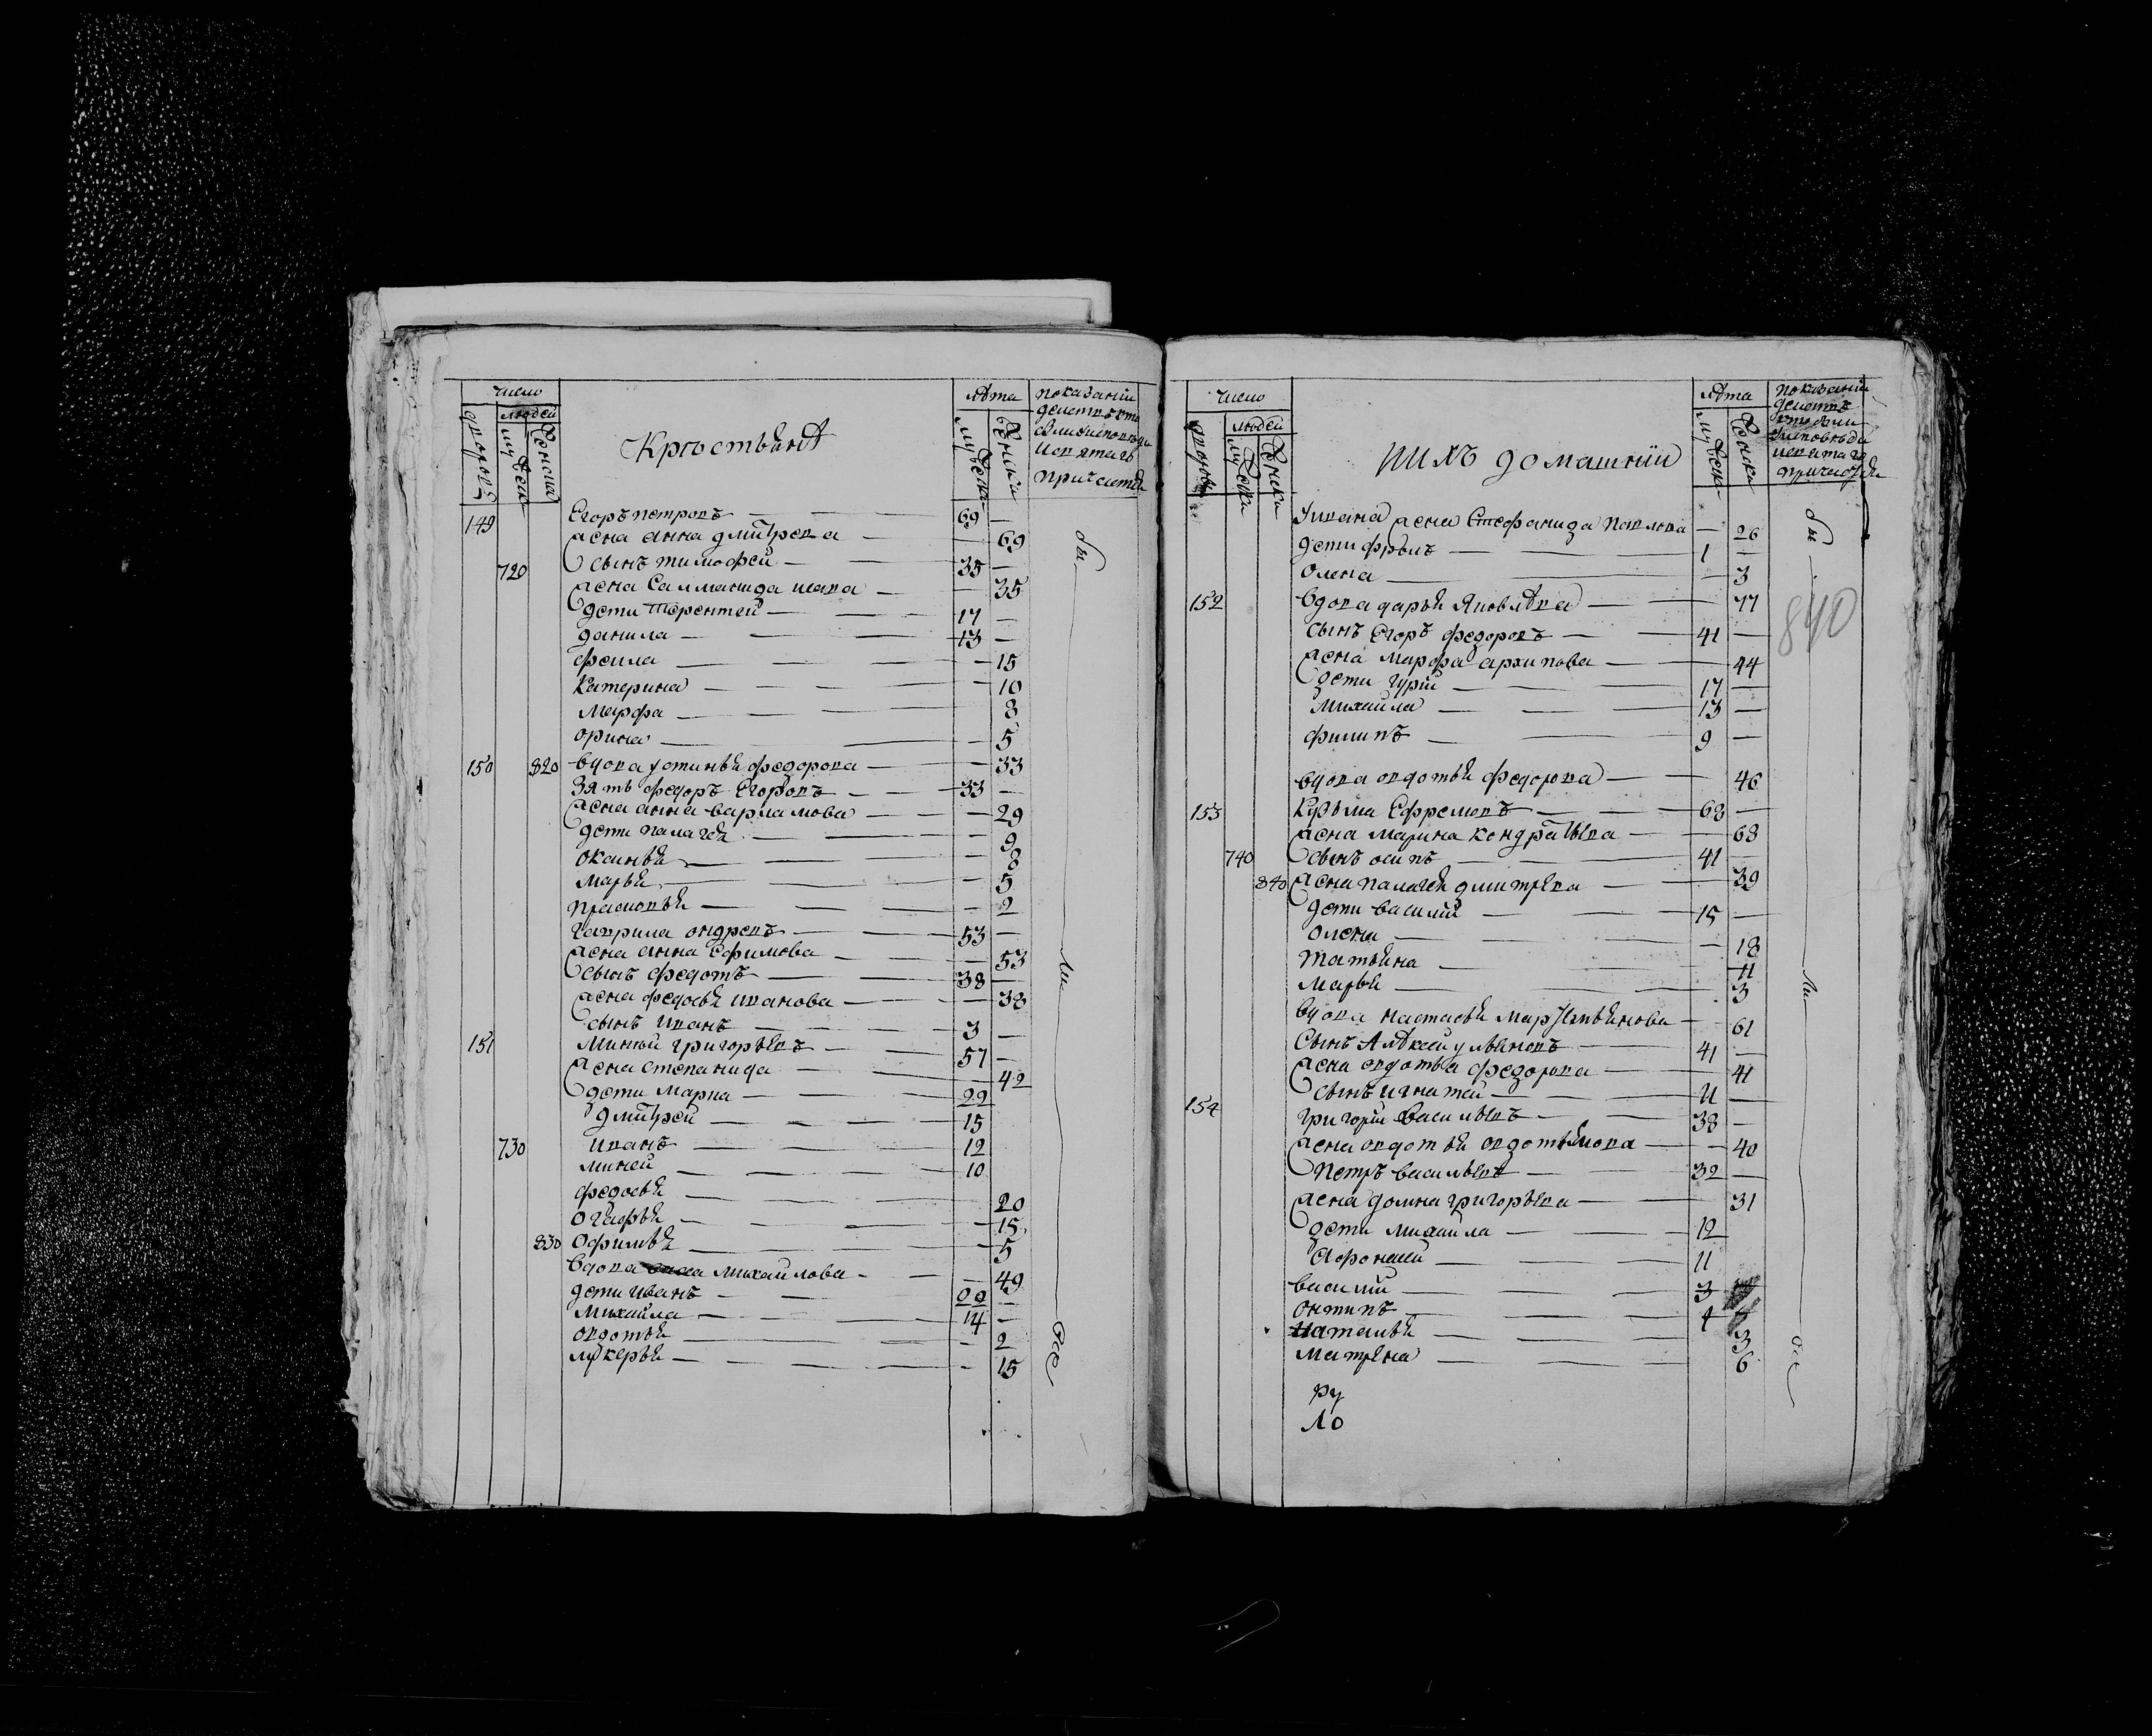 число
людей
дворовъ
муческа
женска
Кръстьянѣ
лѣта
мужеска
женска
показаніи
149 Егоръ петровъ — 69 —
жена анна дмитрева — 69
720 сынъ тимофей — 35 —
жена Саломанида исаева — 35
дети терентей — 17 —
данила — 13 —
фекла — 15
Катерина — 10
марфа — 8
орина — 5
150 820 вдова устинья федорова — 33
Зять федоръ Егоровъ — 33 —
жена анна варламова — 29
дети палагея — 9
оксинья — 8
марья — 5
прасковья — 2
гаврила ондревъ — 53 —
жена анна Ефимова — 53
сынъ федотъ — 38 —
жена федосья иванова — 38
сынъ иванъ — 3 —
151 Миней григорьевъ — 57 —
жена степанида — 42
дети марка — 22
дмитрей — 15
730 иванъ — 12
миней — 10
федосья — 20
огафья — 15
830 офимья — 5
вдова михайлова — 49
дети иванъ —
михайла — 14 —
овдотья — 2
лукерья — 15
бы
ли
все
число
людей
дворовъ
женска
ИИХЪ домашнїи
лѣта
женска
показаніи
Ивана жена Стефанида павлова — 26
дети фролъ — 1 —
олена — 3
152 вдова дарья Яковлѣва — 77
сынъ Егоръ федоровъ — 41 —
жена марфа архипова — 44
дети гурїй — 17 —
михайла — 13 —
филипъ — 9 —
вдова овдотья федорова — 46
153 Кузьма Ефремовъ — 68 —
жена марина кондратьева — 68
740 сынъ осипъ — 41 —
840 жена палагея дмитрева — 39
дети василїй — 15 —
олена — 18
татьяна — 11
марья — 3
вдова настасья мартемьянова — 61
Сынъ Алѣксей ульяновъ — 41 —
жена овдотья федорова — 41
сынъ игнатей — 11 —
154 григорїй васильевъ — 38 —
жена овдотья — 40
Петръ васильевъ — 32 —
жена домна григорьева — 31
дети михайла — 12
афонасей — 11
василїй — 3
онтипъ — 1
наталья — 3
матрена — 6
ру
ло
бы
840
ли
все